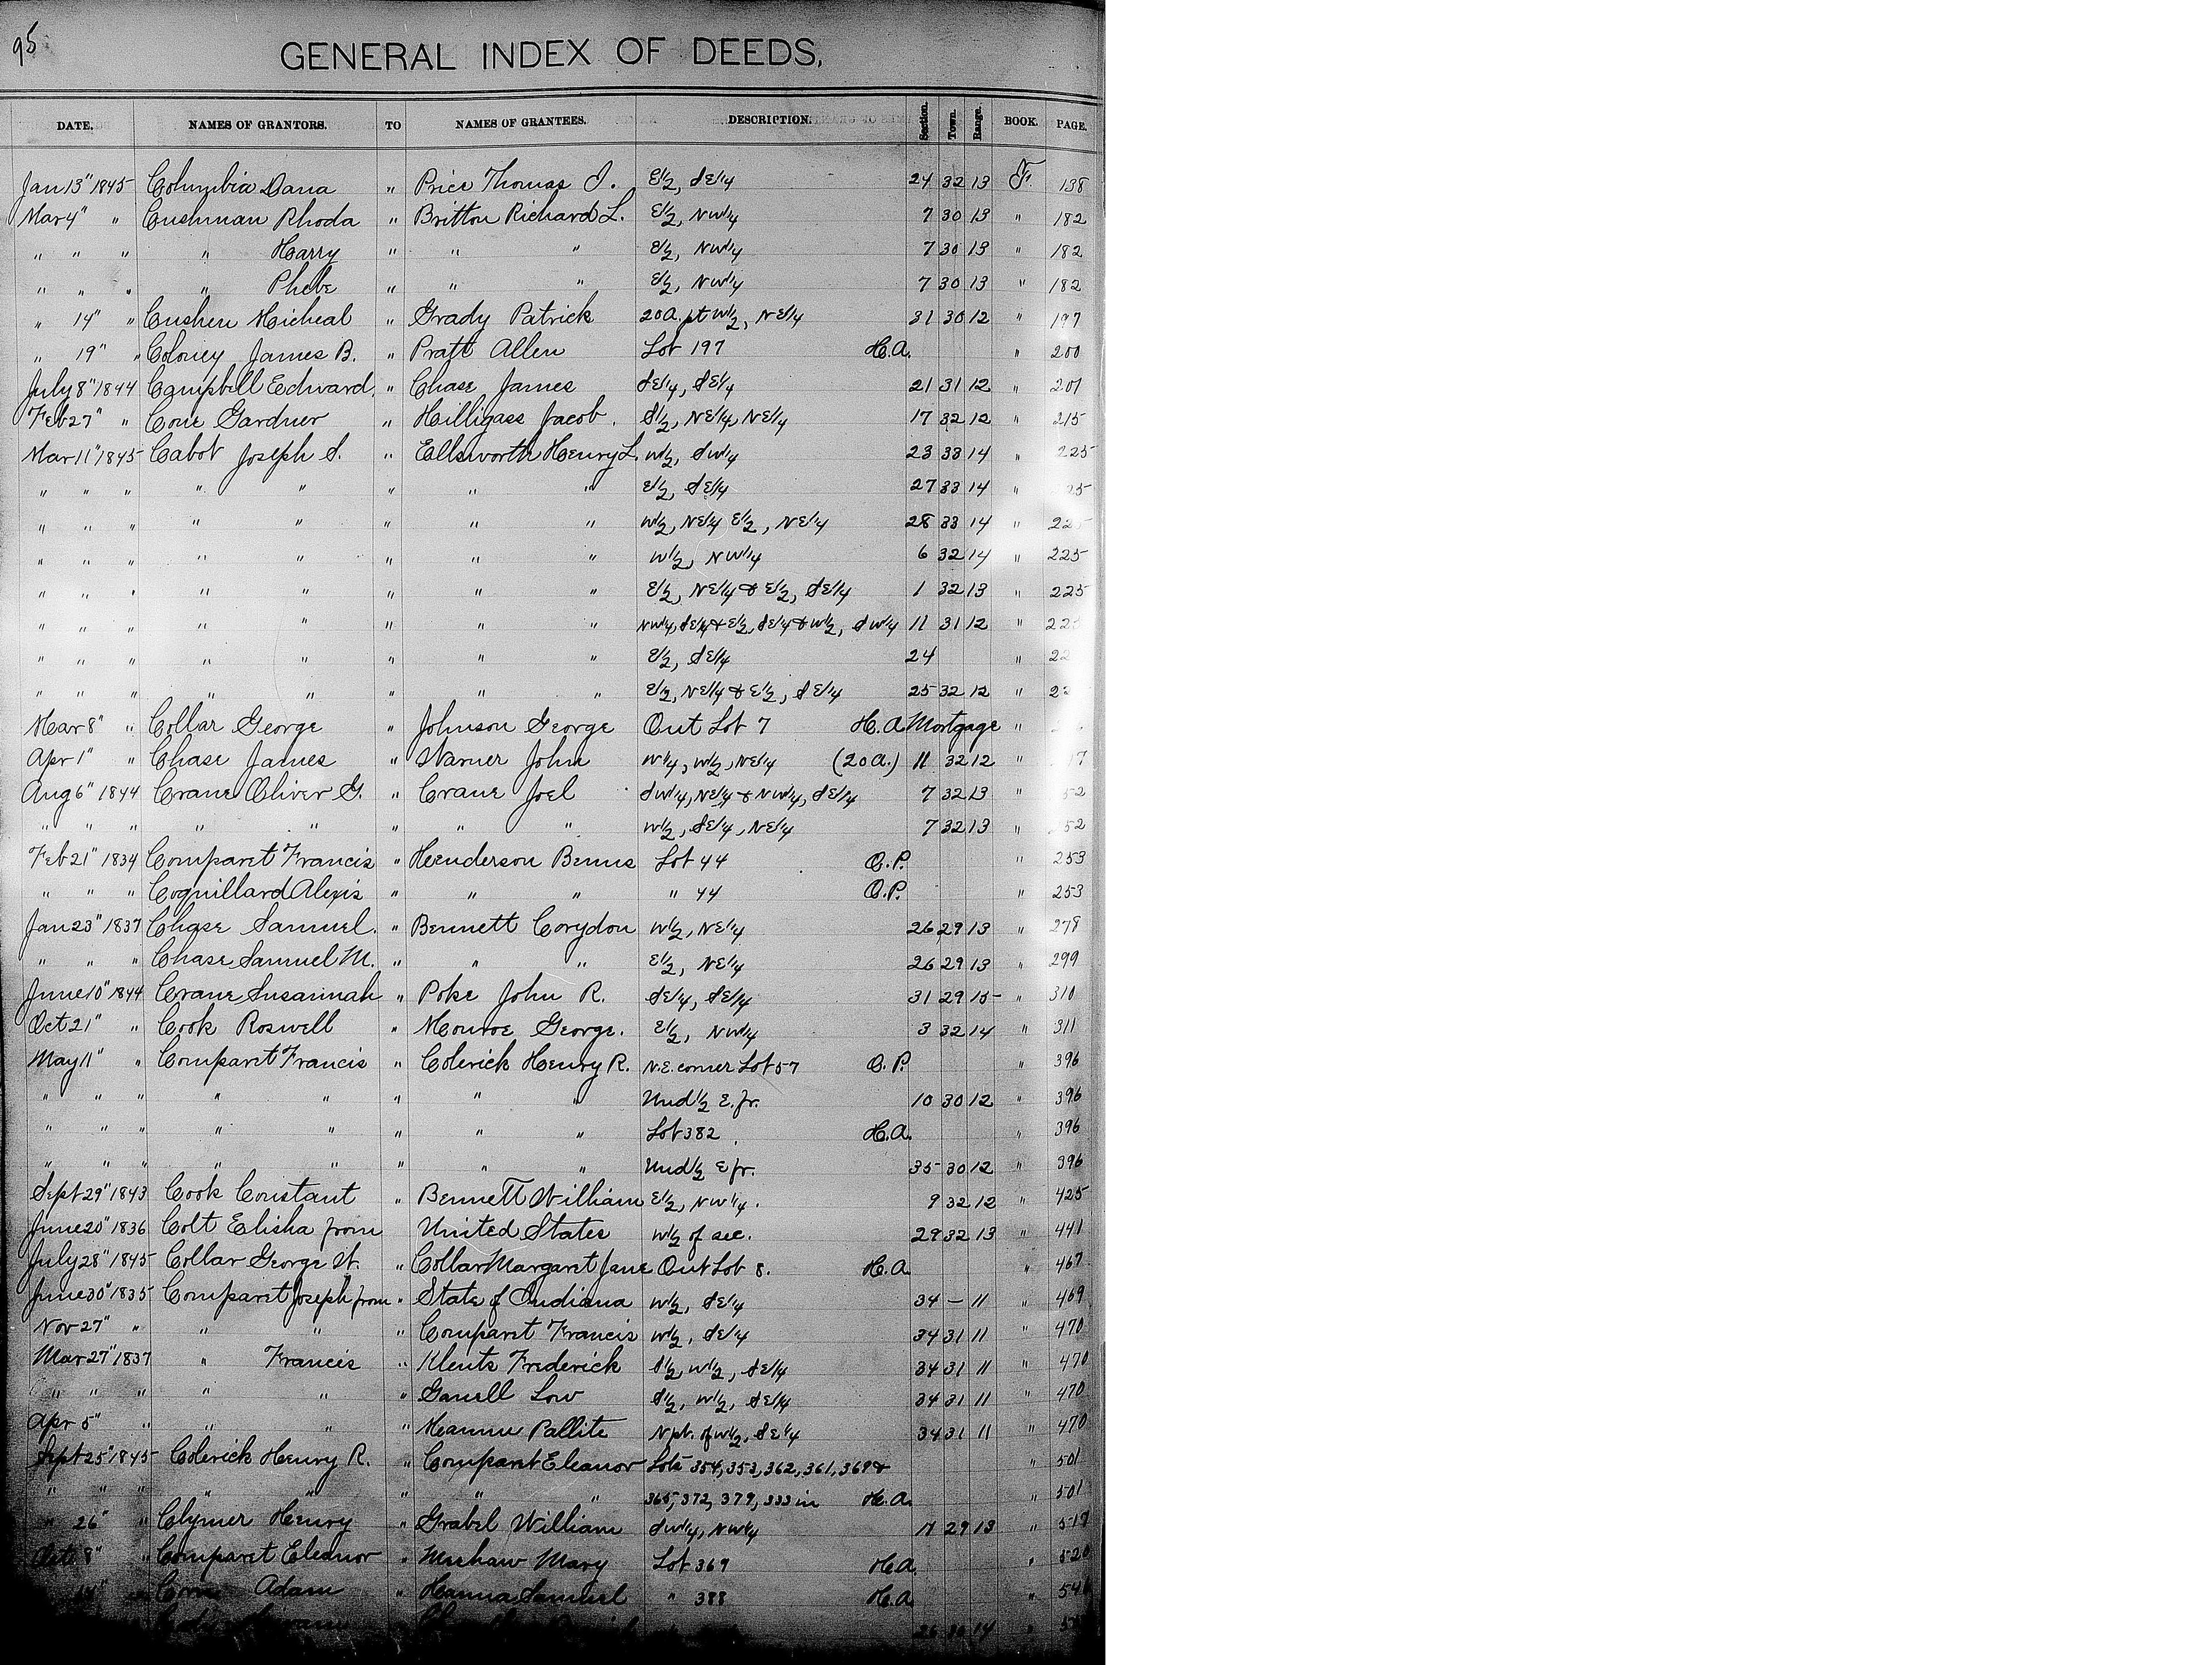 95
GENERAL INDEX OF DEEDS,
DATE. NAMES OF GRANTORS. TO NAMES OF GRANTEES. DESCRIPTION. Section. Town. Range. BOOK. PAGE.
Jan 13" 1845 Columbia Dana " Price Thomas J. E1/2, SE1/4 24 32 13 F. 138
Mar 4" " Cushman Rhoda " Britton Richard L. E1/2, NW1/4 7 30 13 " 182
" " " " Harry " " " E1/2, NW1/4 7 30 13 " 182
" " " " Phebe " " " E1/2, NW1/4 7 30 13 " 182
" 14" " Cushen Micheal " Grady Patrick 20A. pt W1/2, NE1/4 31 30 12 " 197
" 19" " Coloney James B. " Pratt Allen Lot 197 H.A. " 200
July 8" 1844 Campbell Edward. " Chase James SE1/4, SE1/4 21 31 12 " 201
Feb 27" " Cone Gardner " Hilligass Jacob. S1/2, NE1/4, NE1/4 17 32 12 " 215
Mar 11" 1845 Cabot Joseph S. " Ellsworth Henry L. W1/2, SW1/4 23 33 14 " 225
" " " " " " " " E1/2, SE1/4 27 33 14 " 25
" " " " " " " " W1/2, NE1/4 E1/2, NE1/4 28 33 14 " 22
" " " " " " " " W1/2, NW1/4 6 32 14 " 225
" " " " " " " " E1/2, NE1/4 & E1/2, SE1/4 1 32 13 " 225
" " " " " " " " NW1/4, SE1/4 & E1/2, SE1/4 & W1/2, SW1/4 11 31 12 " 22
" " " " " " " " E1/2, SE1/4 24 " 22
" " " " " " " " E1/2, NE1/4 & E1/2, SE1/4 25 32 12 " 22
Mar 8" " Collar George " Johnson George Out Lot 7 H.A. Mortgage "
Apr 1" " Chase James " Warner John W1/4, W1/2, NE1/4 (20A.) 11 32 12 " 17
Aug 6" 1844 Crane Oliver G. " Crane Joel SW1/4, NE1/4 & NW1/4, SE1/4 7 32 13 " 52
" " " " " " " " W1/2, SE1/4, NE1/4 7 32 13 " 252
Feb 21" 1834 Comparet Francis " Henderson Bennis Lot 44 O.P. " 253
" " " Coquillard Alexis " " " " 44 O.P. " 253
Jan 23" 1837 Chase Samuel. " Bennett Corydon W1/2, NE1/4 26 29 13 " 278
" " " Chase Samuel M. " " " E1/2, NE1/4 26 29 13 " 299
June 10" 1844 Crane Susannah " Poke John R. SE1/4, SE1/4 31 29 15 " 310
Oct 21" " Cook Roswell " Monroe George. E1/2, NW1/4 3 32 14 " 311
May 11" " Comparet Francis " Colerick Henry R. N.E. corner Lot 57 O.P. " 396
" " " " " " " " Und1/2 E. fr. 10 30 12 " 396
" " " " " " " " Lot 382. H.A. " 396
" " " " " " " " Und1/2 E fr. 35 30 12 " 396
Sept 29" 1843 Cook Constant " Bennett William E1/2, NW1/4. 9 32 12 " 425
June 20" 1836 Colt Elisha from United States W1/2 of sec. 29 32 13 " 441
July 28" 1845 Collar George W. " Collar Margaret Jane Out Lot 8. H.A. " 467
June 30" 1835 Comparet Joseph from " State of Indiana W1/2, SE1/4 34 — 11 " 469
Nov 27" " " " " Comparet Francis W1/2, SE1/4 34 31 11 " 470
Mar 27" 1837 " Francis " Klents Frederick S1/2, W1/2, SE1/4 34 31 11 " 470
" " " " " " Low S1/2, W1/2, SE1/4 34 31 11 " 470
Apr 5" " " " " Pallite N pt. of W1/2, SE1/4 34 31 11 " 470
Sept 25" 1845 Colerick Henry R. " Comparet Eleanor Lots 354, 353, 362, 361, 369 &
" " " " " " " " 365, 372, 379, 333 in H.A. " 501
" 26" " Clymer Henry " Grabel William SW1/4, NW1/4 17 29 13 " 517
Oct 8" " Comparet Eleanor " Mary Lot 369 H.A. " 520
14" Adam " Hanna Samuel " 388 H.A. " 54
26 30 14 "